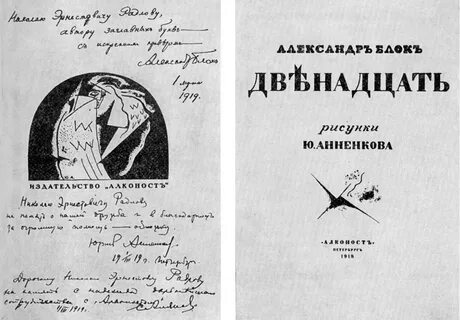 Николаю Эрнестовичу Радлову,
автору заглавных букв —
с искренним приветом
Александр Блок
1 марта
1919.
ИЗДАТЕЛЬСТВО „АЛКОНОСТЪ"
Николаю Эрнестовичу Радлову
на память о нашей дружбе и в благодарность
за огромную помощь —
Юрий Анненков
19 г. Петербург.
Дорогому Николаю Эрнестовичу Радлову
на память с надеждой дальнейшего
сотрудничества с „Алконостом"
1919. С. Алянский
АЛЕКСАНДРЪ БЛОКЪ
ДВѢНАДЦАТЬ
рисунки
Ю. АННЕНКОВА
„АЛКОНОСТЪ„
ПЕТЕРБУРГЪ
1918